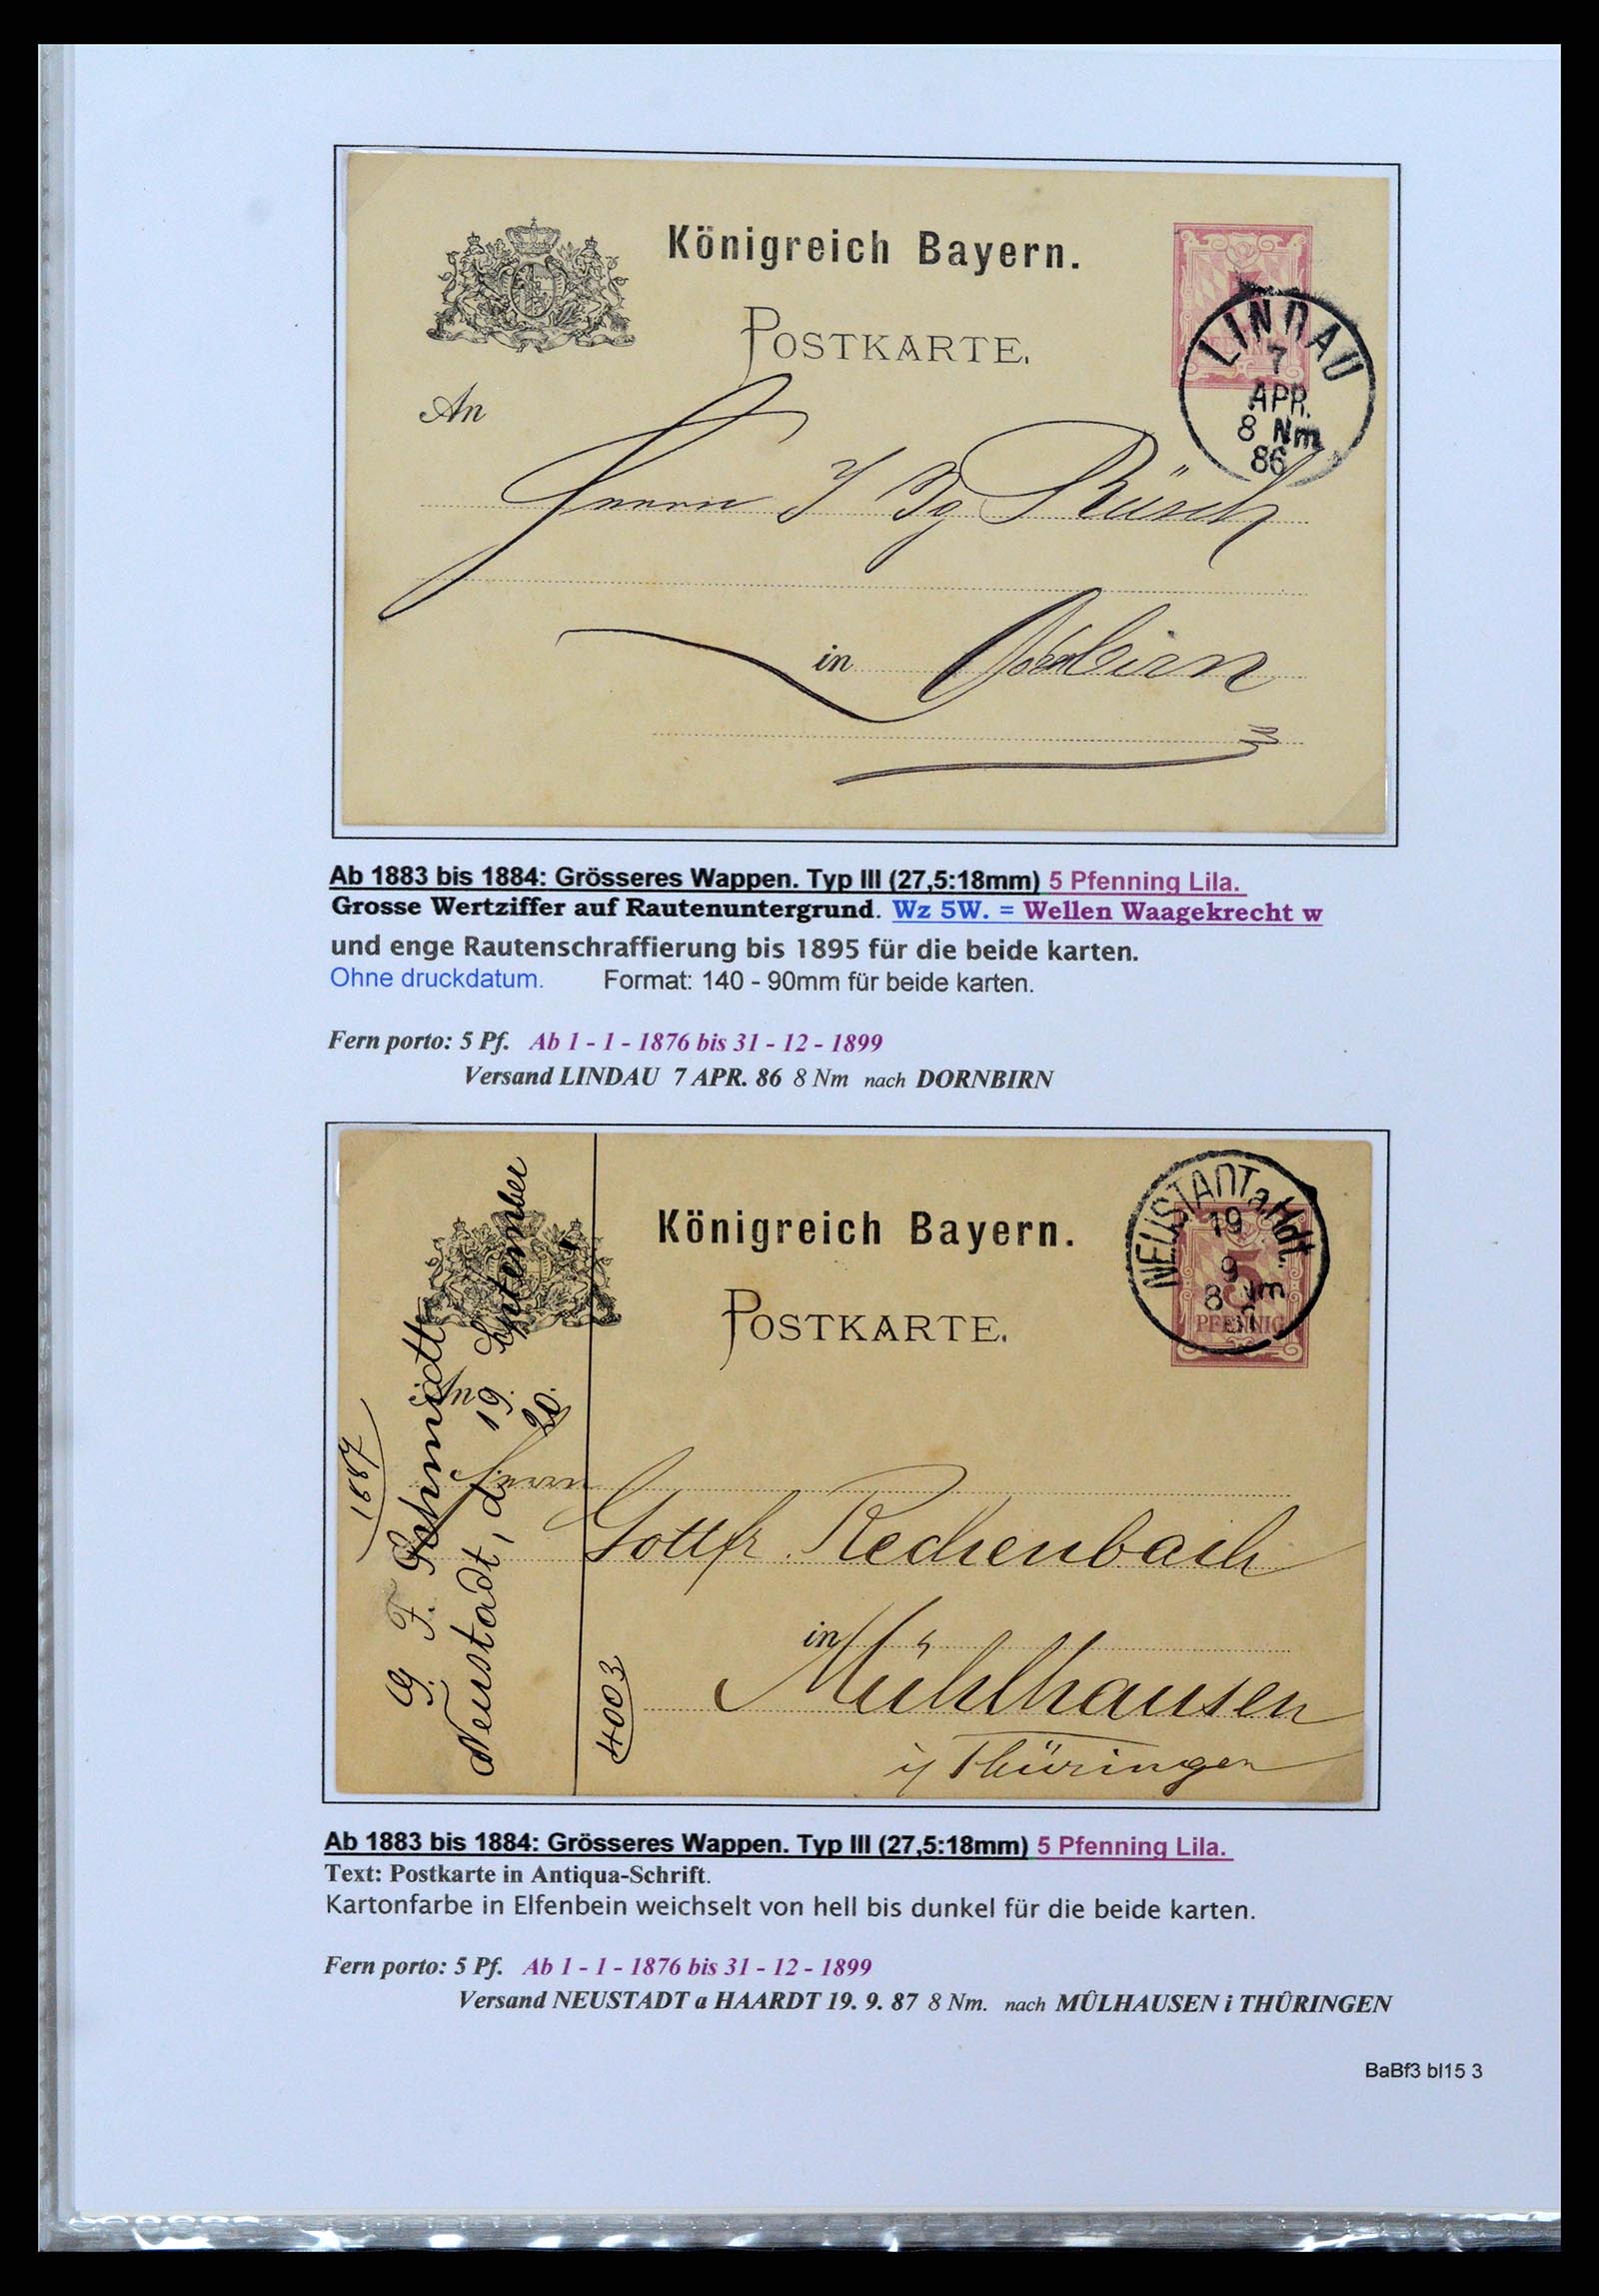 Königreich Bayern.
POSTKARTE.
LINDAU
7
APR.
8 Nm
86
An
Herrn J Gg Rüsch
in Dornbirn
Ab 1883 bis 1884: Grösseres Wappen. Typ III (27,5:18mm) 5 Pfenning Lila.
Grosse Wertziffer auf Rautenuntergrund. Wz 5W. = Wellen Waagekrecht w
und enge Rautenschraffierung bis 1895 für die beide karten.
Ohne druckdatum. Format: 140 - 90mm für beide karten.
Fern porto: 5 Pf. Ab 1 - 1 - 1876 bis 31 - 12 - 1899
Versand LINDAU 7 APR. 86 8 Nm nach DORNBIRN
Königreich Bayern.
POSTKARTE.
NEUSTADT a. Hdt.
19
9
8 Nm
5
PFENNIG
An
1887
G. F. Rehmidt
Neustadt, d. 19. September
20.
Herrn
Gottfr. Rechenbach
in Mühlhausen
i/ Thüringen
4003
Ab 1883 bis 1884: Grösseres Wappen. Typ III (27,5:18mm) 5 Pfenning Lila.
Text: Postkarte in Antiqua-Schrift.
Kartonfarbe in Elfenbein weichselt von hell bis dunkel für die beide karten.
Fern porto: 5 Pf. Ab 1 - 1 - 1876 bis 31 - 12 - 1899
Versand NEUSTADT a HAARDT 19. 9. 87 8 Nm. nach MÛLHAUSEN i THÛRINGEN
BaBf3 bl15 3